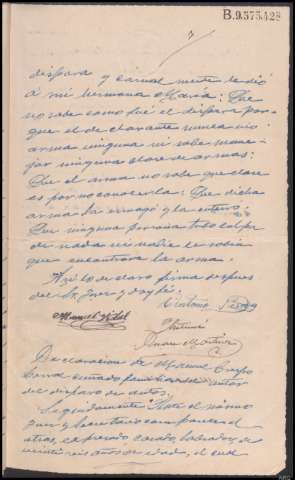 B.9.575.428
dispara y casual mente le dió
á mi hermana María: Que
no sabe como fué el disparo por-
que el declarante nunca vió
arma ninguna ni sabe mane-
jar ninguna clase de armas:
Que el arma no sabe que clase
es por no conocerla: Que dicha
arma la
Que ninguna persona tubo culpa
de nada ni nadie le
que encontrara la arma.
Así lo declara firma despues
del Sr. Juez y doy fé.
Antonio
Manuel Vidal
Juan Martínez
Declaracion de Manuel Crespo
autor
del disparo de autos.
Seguidamente Ante el mismo
Juez y Secretario
otras, expresado casado, labrador, de
veinti seis años de edad, el cual